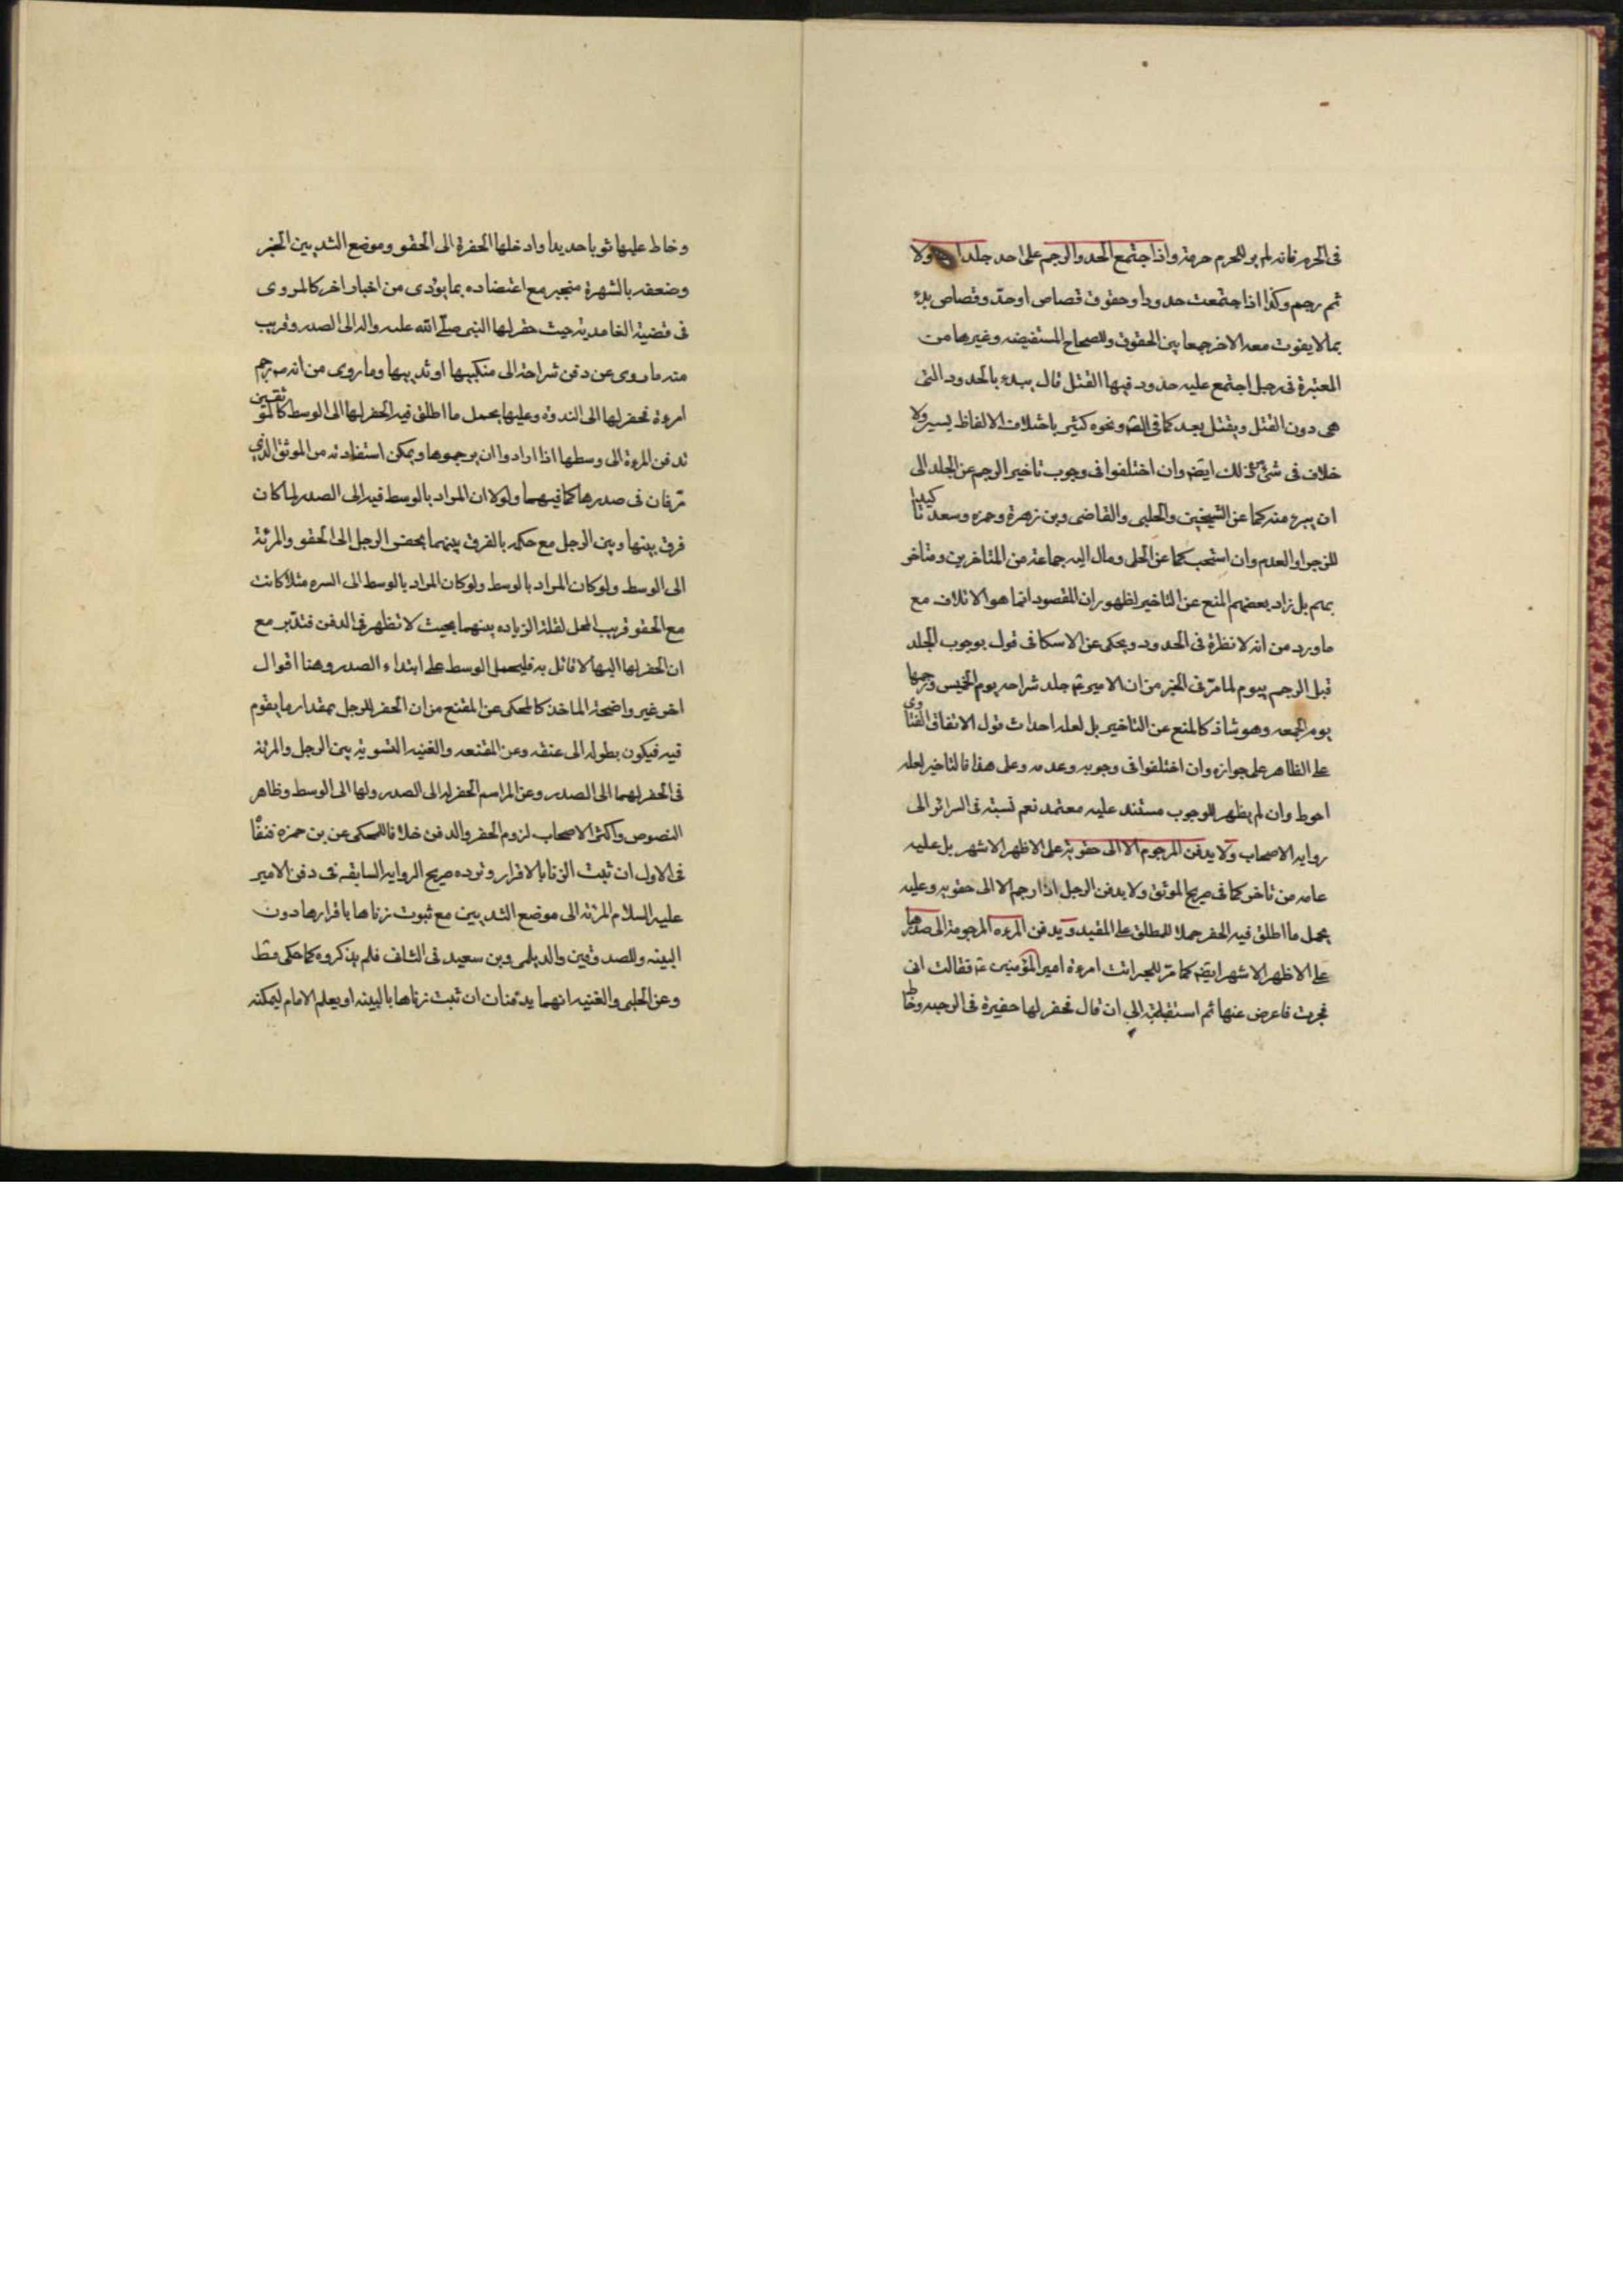 فى الحرم فانه لم ير للحرم حرمة واذا اجتمع الحد والرجم على احد جلد اولا
ثم رجم وكذا اذا اجتمعت حدود او حقوق قصاص او حدّ وقصاص بدء
بما لا يفوت معه الاخر جمعا بين الحقوق وللصحاح المستفيضه وغيرها من
المعتبرة فى رجل اجتمع عليه حدود فيها القتل قال يبدء بالحدود التى
هى دون القتل ويقتل بعد كما فى الصه ونحوه كثير باختلاف الالفاظ يسير ولا
خلاف فى شئ من ذلك ايضه وان اختلفوا فى وجوب تاخير الرجم عن الجلد الى
ان يبرء منه كما عن الشيخين والحلبى والقاضى وبن زهرة وحمزه وسعد تاكيدا
للزجر او العدم وان استحب كما عن الحلى ومال اليه جماعة من المتاخرين ومتاخر
يهم بل زاد بعضهم المنع عن التاخير لظهور ان المقصود انما هو الاتلاف مع
ما ورد من انه لا نظرة فى الحدود ويحكى عن الاسكافى قول بوجوب الجلد
قبل الرجم بيوم لما مرّ فى الخبر من ان الامير ع جلد شراحه يوم الخميس ورجمها
يوم الجمعه وهو شاذ كالمنع عن التاخير بل لعله احداث قول الاتفاق الفتاوى
على الظاهر على جوازه وان اختلفوا فى وجوبه وعدمه وعلى هذا فالتاخير لعله
احوط وان لم يظهر للوجوب مستند عليه معتمد نعم نسبته فى السرائر الى
روايه الاصحاب ولا يدفن المرجوم الا الى حقويه على الاظهر الاشهر بل عليه
عامه من تاخر كما فى صريح الموثق ولا يدفن الرجل اذا رجم الا الى حقويه وعليه
يحمل ما اطلق فيه الحفر حملا للمطلق على المقيد ويدفن المرءه المرجومة الى صدرها
على الاظهر الاشهر ايضه كما مرّ للخبر اتت امرءة امير المؤمنين ع فقالت انى
فجرت فاعرض عنها ثم استقبلته الى ان قال فحفر لها حفيرة فى الرحبه وخاط
وخاط عليها ثوبا جديدا وادخلها الحفرة الى الحقو وموضع الثديين الخبر
وضعفه بالشهرة منجبر مع اعتضاده بما يؤدى من اخبار اخر كالمروى
فى قضية الغامدية حيث حفر لها النبى صلى الله عليه واله الى الصدر وقريب
منه ما روى عن دفن شراحة الى منكبيها او ثدييها وما روى من انه ص رجم
امرءة فحفر لها الى الثندوة وعليها يحمل ما اطلق فيه الحفر لها الى الوسط كالموثقين
تدفن المرءة الى وسطها اذا ارادوا ان يرجموها ويمكن استفادته من الموثق الذى
مرّ فان فى صدرها كما فيهما ولولا ان المراد بالوسط فيه الى الصدر لما كان
فرق بينها وبين الرجل مع حكمه بالفرق بينهما بحفر الرجل الى الحقو والمرئة
الى الوسط ولو كان المراد بالوسط ولو كان المراد بالوسط الى السره مثلا كانت
مع الحقو قريب المحل لقلة الزياده بينهما بحيث لا تظهر فى الدفن فتدبر مع
ان الحفر لها اليها لا قائل به فليحمل الوسط على ابتداء الصدر وهنا اقوال
اخر غير واضحة الماخذ كالمحكى عن المقنع من ان الحفر للرجل بمقدار ما يقوم
فيه فيكون بطوله الى عنقه وعن المقنعه والغنيه التسوية بين الرجل والمرئه
فى الحفر لهما الى الصدر وعن المراسم الحفر له الى الصدر ولها الى الوسط وظاهر
النصوص واكثر الاصحاب لزوم الحفر والدفن خلافا للمحكى عن بن حمزه فنفاه
فى الاول ان ثبت الزنا بالاقرار وترده صريح الروايه السابقه فى دفن الامير
عليه السلام المرئه الى موضع الثديين مع ثبوت زناها باقرارها دون
البينه وللصدوقين والديلمى وبن سعيد فى الثانى فلم يذكروه كما حكى مط
وعن الحلبى والغنيه انهما يدفنان ان ثبت زناها بالبينه او بعلم الامام ليمكنه